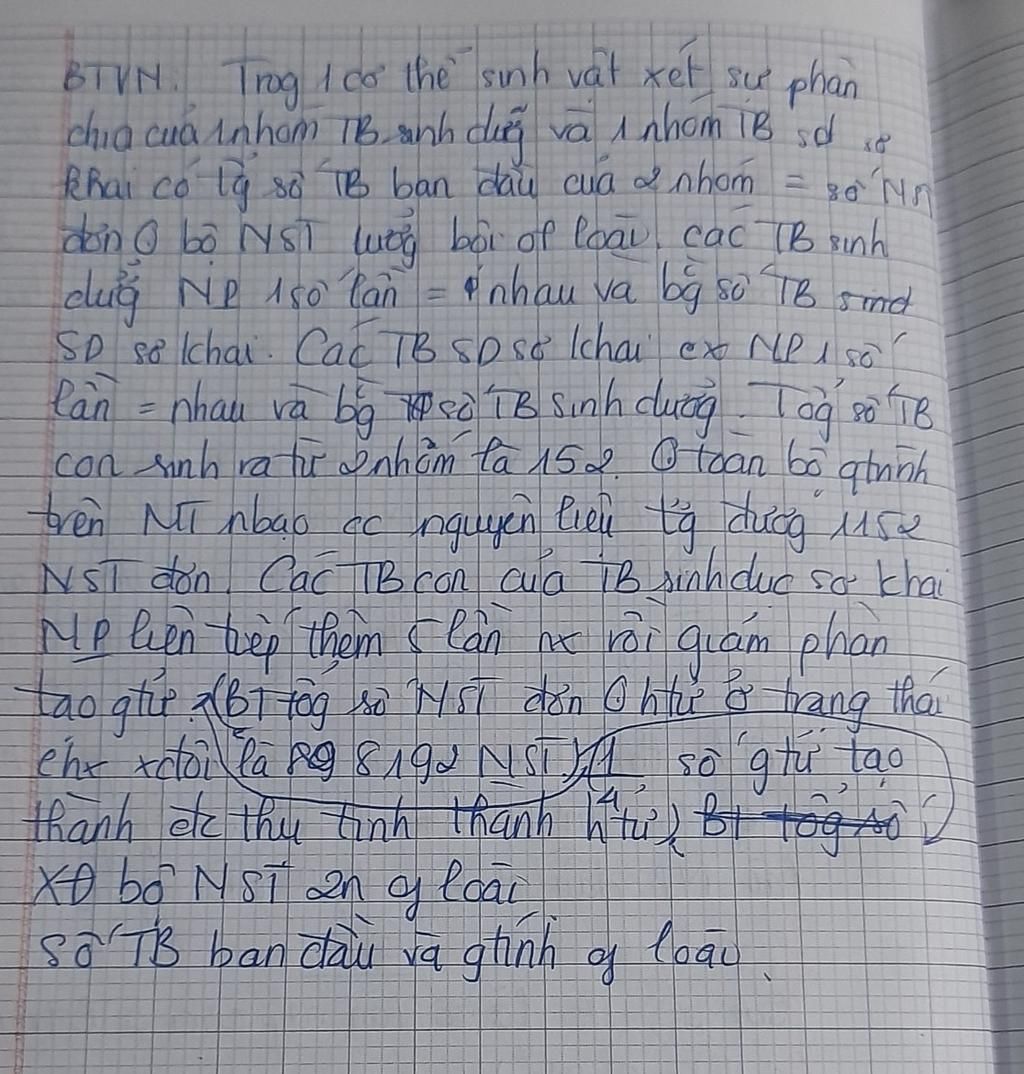 BTVN. Trog 1 cơ thể sinh vật xét sự phân
chia của 1 nhóm TB sinh dưỡng và 1 nhóm TB sd sơ
khai có tỷ số TB ban đầu của 2 nhóm = số NST
đơn bộ NST lưỡng bội of loài, các TB sinh
dưỡng NP 1 số lần = nhau và bg số TB
SD sơ khai. Các TB SD sơ khai NP 1 số
lần = nhau và bg số TB sinh dưỡng. Tổg số TB
con sinh ra từ 2 nhóm là 152. toàn bộ qtrình
trên MT nbào cc nguyên liệu tg đương 1152
NST đơn. Các TB con của TB sinh dục sơ khai
NP liên tiếp thêm 5 lần rồi giảm phân
tạo gtử. (BT tổg số NST đơn htử ở trạng thái
chx xđôi là 8192 NST) số gtử tạo
thành đc thụ tinh thành htử,
XĐ bộ NST 2n of loài
Số TB ban đầu và gtính of loài.